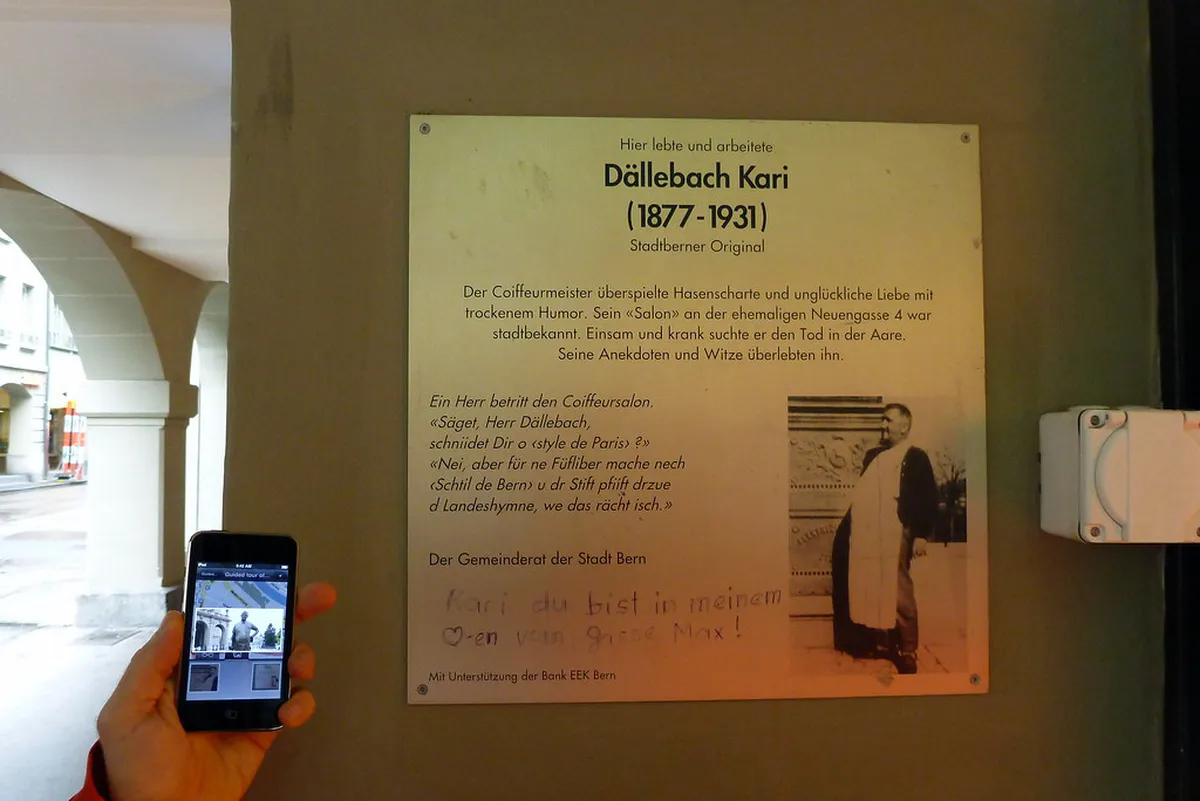 Hier lebte und arbeitete
Dällebach Kari
(1877-1931)
Stadtberner Original
Der Coiffeurmeister überspielte Hasenscharte und unglückliche Liebe mit
trockenem Humor. Sein «Salon» an der ehemaligen Neuengasse 4 war
stadtbekannt. Einsam und krank suchte er den Tod in der Aare.
Seine Anekdoten und Witze überlebten ihn.
Ein Herr betritt den Coiffeursalon.
«Säget, Herr Dällebach,
schniidet Dir o ‹style de Paris› ?»
«Nei, aber für ne Füfliber mache nech
‹Schtil de Bern› u dr Stift pfiift drzue
d Landeshymne, we das rächt isch.»
Der Gemeinderat der Stadt Bern
Kari du bist in meinem
♡-en vom Max!
Mit Unterstützung der Bank EEK Bern
Guided tour of...